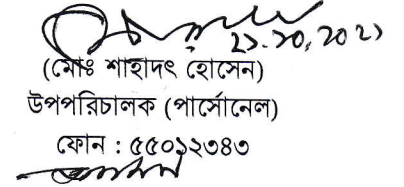 ২১.১০.২০২১
(মোঃ শাহাদৎ হোসেন)
উপপরিচালক (পার্সোনেল)
ফোন : ৫৫০১২৩৪৩